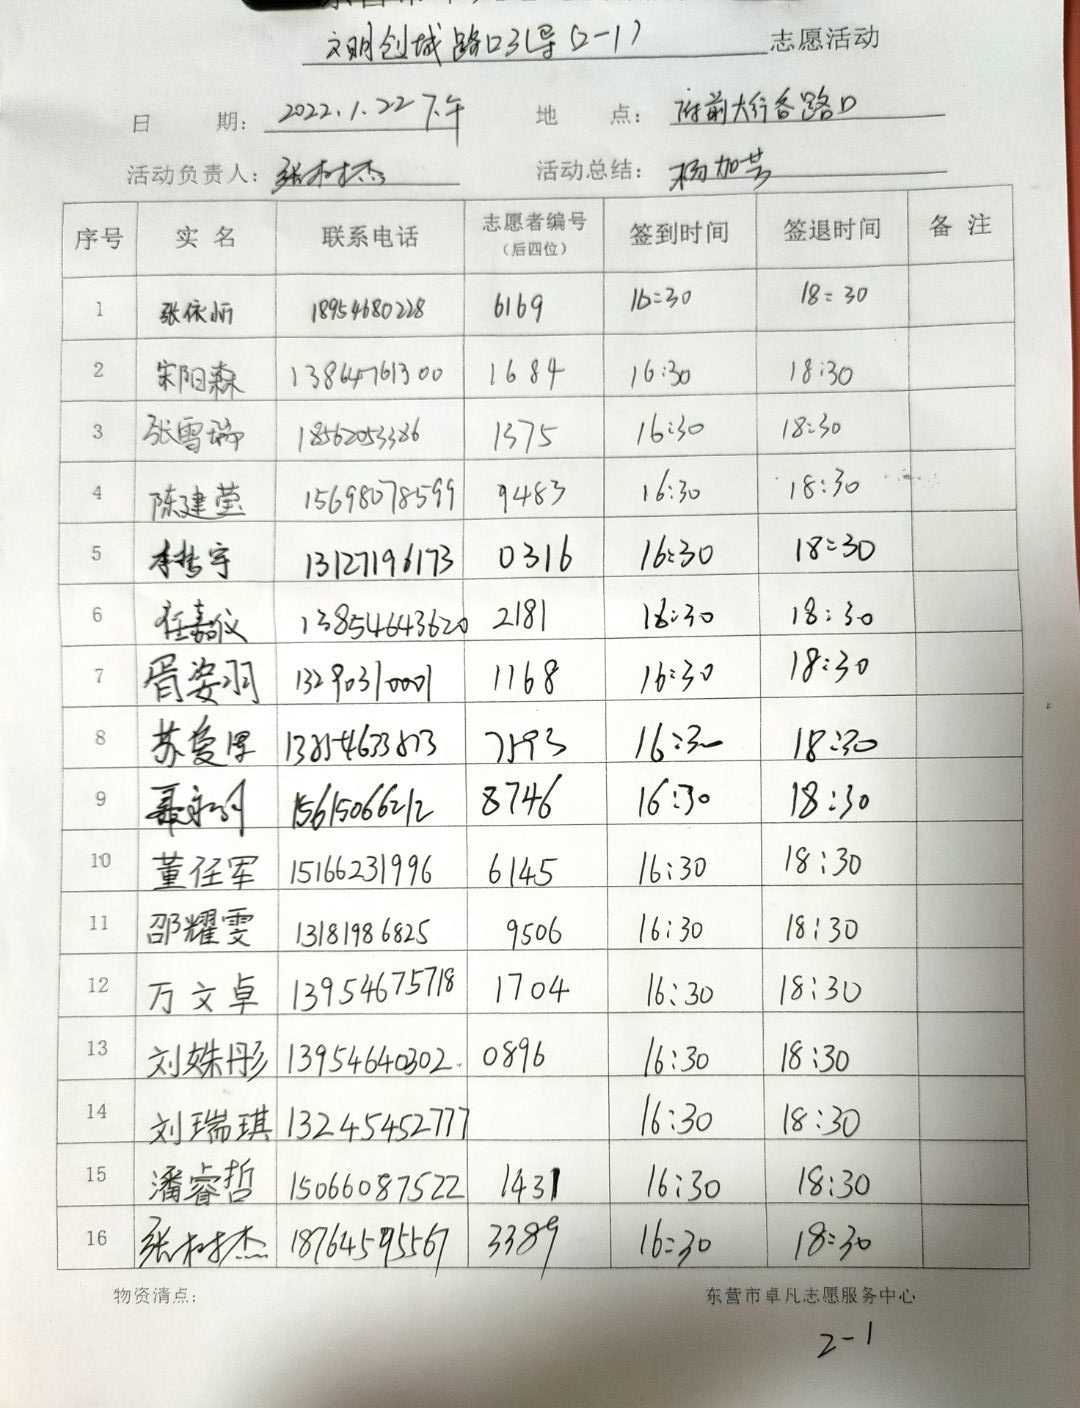 文明创城路口引导(2-1) 志愿活动
日 期: 2022.1.22下午 地 点: 府前大街各路口
活动负责人: 张树杰 活动总结: 杨加芸
序号 实 名 联系电话 志愿者编号(后四位) 签到时间 签退时间 备 注
1 张依忻 18954680228 6169 16:30 18:30
2 宋阳森 13864761300 1684 16:30 18:30
3 张雪瑞 18562053386 1375 16:30 18:30
4 陈建莹 15698078599 9483 16:30 18:30
5 宇 13127196173 0316 16:30 18:30
6 任嘉仪 13854643620 2181 16:30 18:30
7 胥姿羽 13290310001 1168 16:30 18:30
8 苏爱军 13854633873 7593 16:30 18:30
9 15615066212 8746 16:30 18:30
10 董任军 15166231996 6145 16:30 18:30
11 邵耀雯 13181986825 9506 16:30 18:30
12 万文卓 13954675718 1704 16:30 18:30
13 刘姝彤 13954640302 0896 16:30 18:30
14 刘瑞琪 13245452777 16:30 18:30
15 潘睿哲 15066087522 1431 16:30 18:30
16 张树杰 18764595567 3389 16:30 18:30
物资清点: 东营市卓凡志愿服务中心
2-1